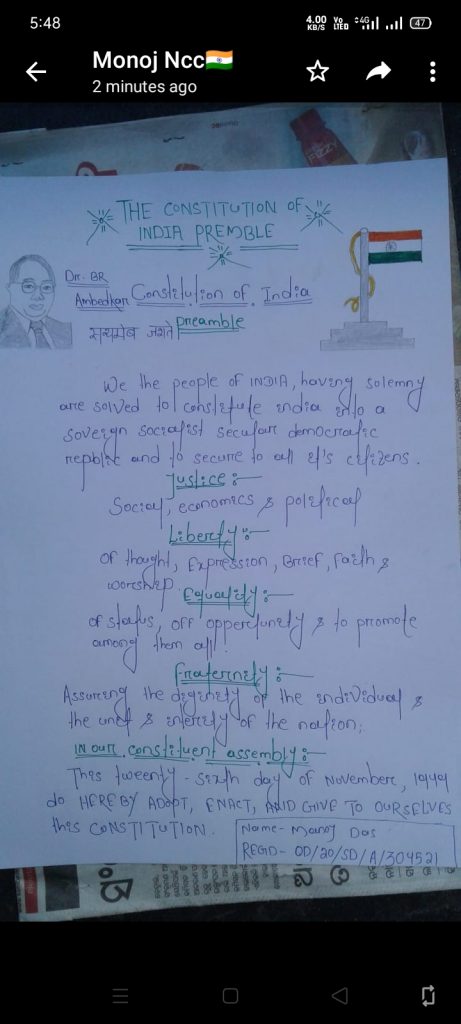 5:48
4.00 KB/S Vo LTED 4G 47
Monoj Ncc🇮🇳
2 minutes ago
FIZZY
THE CONSTITUTION OF
INDIA PREMBLE
Drr. BR
Ambedkarr Constitution of India
सत्यमेब जयते Preamble
We the people of INDIA, having solemny
are solved to constitute india into a
soveign socialist secular democratic
repblic and to secure to all it's citizens.
Justice :-
Social, economics & political
Liberty :-
Of thought, Expression, Brief, faith &
worship
Equality :-
of status, off opportunety & to promote
among them all.
Fraternity :-
Assureng the diginety of the individual &
the unet & interity of the nation;
IN OUR constituent assembly :-
This tweenty - sixth day of November, 1949
do HEREBY ADOPT, ENACT, AND GIVE TO OURSELVES
this CONSTITUTION.
Name - Manoj Das
REGD - OD/20/SD/A/304521